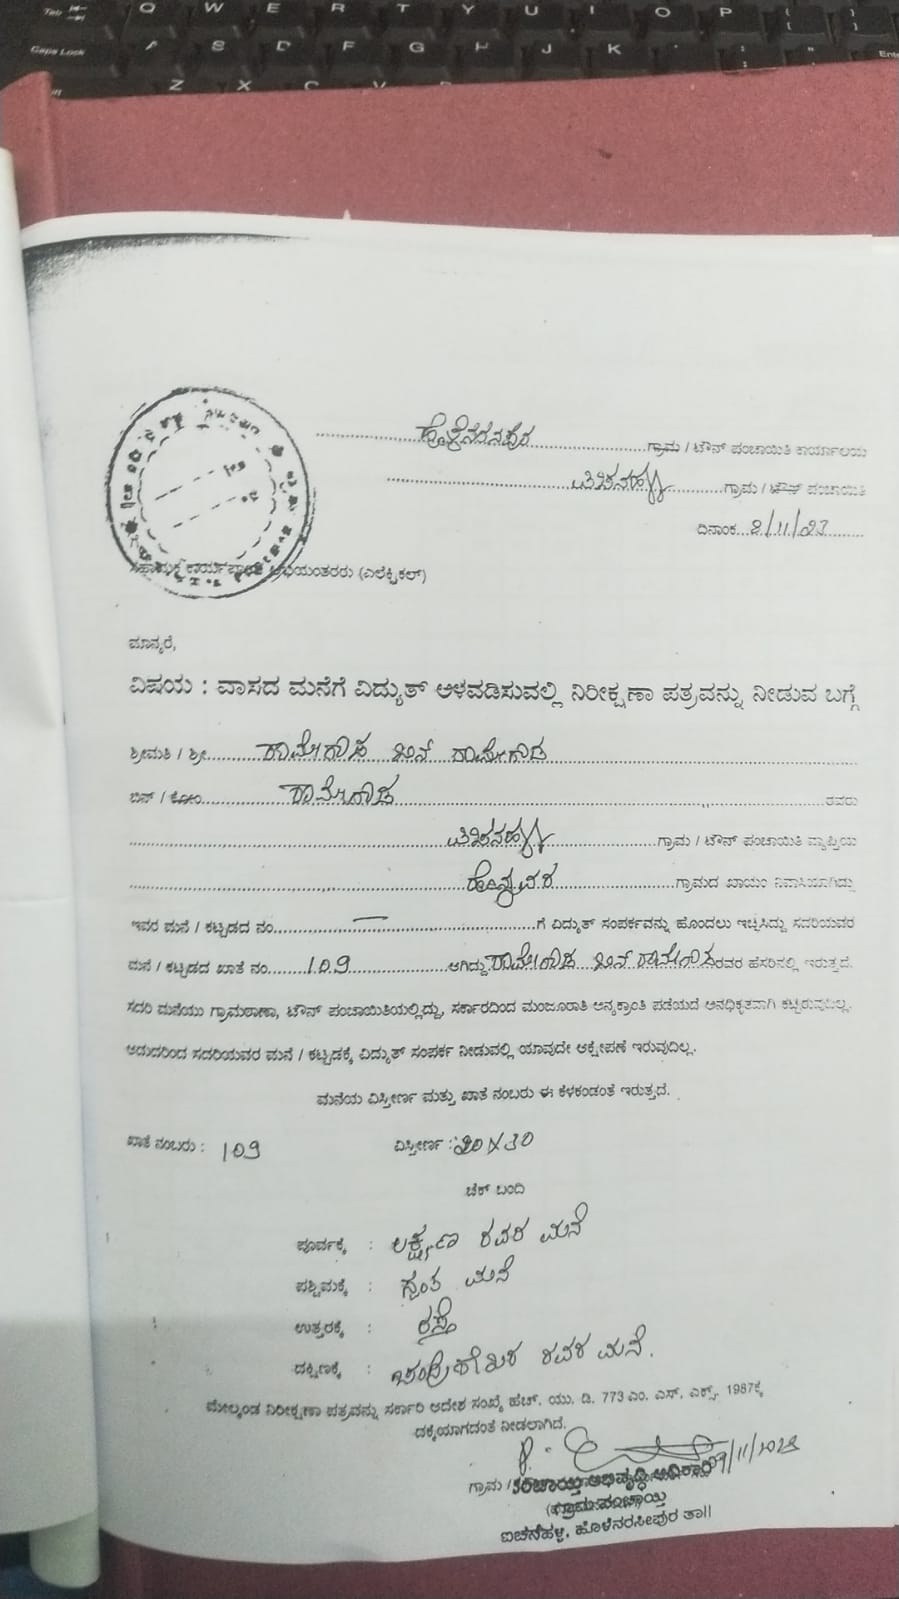 Tab Q W E R T Y U I O P
Caps Lock A S D F G H J K
Z X C V
ಹೊಳೆನರಸೀಪುರ ಗ್ರಾಮ / ಟೌನ್ ಪಂಚಾಯಿತಿ ಕಾರ್ಯಾಲಯ
ಗ್ರಾಮ / ಟೌನ್ ಪಂಚಾಯಿತಿ
ದಿನಾಂಕ
ಸಹಾಯಕ ಕಾರ್ಯಪಾಲಕ ಅಭಿಯಂತರರು (ಎಲೆಕ್ಟ್ರಿಕಲ್)
ಮಾನ್ಯರೆ,
ವಿಷಯ : ವಾಸದ ಮನೆಗೆ ವಿದ್ಯುತ್ ಅಳವಡಿಸುವಲ್ಲಿ ನಿರೀಕ್ಷಣಾ ಪತ್ರವನ್ನು ನೀಡುವ ಬಗ್ಗೆ
ಶ್ರೀಮತಿ / ಶ್ರೀ ರಾಮೇಗೌಡ ಬಿನ್ ರಾಮೇಗೌಡ
ಬಿನ್ / ಕೋಂ ರಾಮೇಗೌಡ ರವರು
ಗ್ರಾಮ / ಟೌನ್ ಪಂಚಾಯಿತಿ ವ್ಯಾಪ್ತಿಯ
ಗ್ರಾಮದ ಖಾಯಂ ನಿವಾಸಿಯಾಗಿದ್ದು
ಇವರ ಮನೆ / ಕಟ್ಟಡದ ನಂ. — ಗೆ ವಿದ್ಯುತ್ ಸಂಪರ್ಕವನ್ನು ಹೊಂದಲು ಇಚ್ಛಿಸಿದ್ದು ಸದರಿಯವರ
ಮನೆ / ಕಟ್ಟಡದ ಖಾತೆ ನಂ. 109 ಆಗಿದ್ದು ರಾಮೇಗೌಡ ಬಿನ್ ರಾಮೇಗೌಡ ರವರ ಹೆಸರಿನಲ್ಲಿ ಇರುತ್ತದೆ.
ಸದರಿ ಮನೆಯು ಗ್ರಾಮಠಾಣಾ, ಟೌನ್ ಪಂಚಾಯಿತಿಯಲ್ಲಿದ್ದು, ಸರ್ಕಾರದಿಂದ ಮಂಜೂರಾತಿ ಅನ್ಯಕ್ರಾಂತಿ ಪಡೆಯದೆ ಅನಧಿಕೃತವಾಗಿ ಕಟ್ಟಿರುವುದಿಲ್ಲ.
ಆದುದರಿಂದ ಸದರಿಯವರ ಮನೆ / ಕಟ್ಟಡಕ್ಕೆ ವಿದ್ಯುತ್ ಸಂಪರ್ಕ ನೀಡುವಲ್ಲಿ ಯಾವುದೇ ಆಕ್ಷೇಪಣೆ ಇರುವುದಿಲ್ಲ.
ಮನೆಯ ವಿಸ್ತೀರ್ಣ ಮತ್ತು ಖಾತೆ ನಂಬರು ಈ ಕೆಳಕಂಡಂತೆ ಇರುತ್ತದೆ.
ಖಾತೆ ನಂಬರು : 109 ವಿಸ್ತೀರ್ಣ :
ಚೆಕ್ ಬಂದಿ
ಪೂರ್ವಕ್ಕೆ : ಲಕ್ಷ್ಮಣ ರವರ ಮನೆ
ಪಶ್ಚಿಮಕ್ಕೆ : ಸ್ವಂತ ಮನೆ
ಉತ್ತರಕ್ಕೆ : ರಸ್ತೆ
ದಕ್ಷಿಣಕ್ಕೆ : ಚಂದ್ರಶೇಖರ ರವರ ಮನೆ.
ಮೇಲ್ಕಂಡ ನಿರೀಕ್ಷಣಾ ಪತ್ರವನ್ನು ಸರ್ಕಾರಿ ಆದೇಶ ಸಂಖ್ಯೆ ಹೆಚ್. ಯು. ಡಿ. 773 ಎಂ. ಎಸ್. ಎಕ್ಸ್. 1987ಕ್ಕೆ
ದಕ್ಕೆಯಾಗದಂತೆ ನೀಡಲಾಗಿದೆ.
ಗ್ರಾಮ / ಪಂಚಾಯ್ತಿ ಅಭಿವೃದ್ಧಿ ಅಧಿಕಾರಿ
ಗ್ರಾಮ ಪಂಚಾಯ್ತಿ
ಐಚನಹಳ್ಳಿ, ಹೊಳೆನರಸೀಪುರ ತಾ||